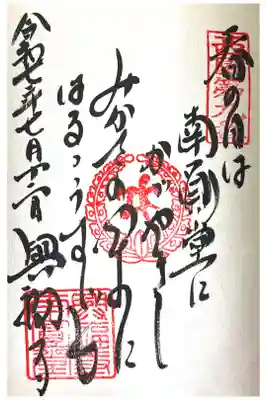 春の日は
南圓堂に
かゞやきて
みかさの山に
はるゝうすぐも
令和七年七月
興福寺